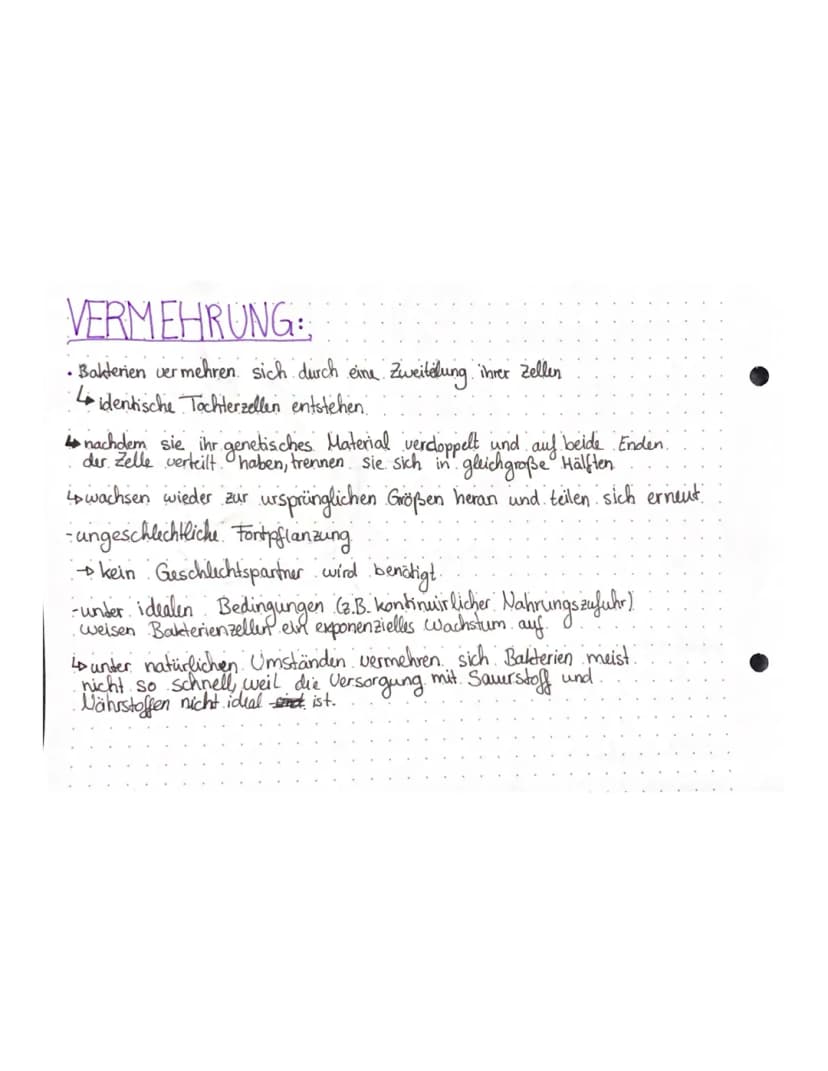 VERMEHRUNG:
• Bakterien vermehren sich durch eine Zweiteilung ihrer Zellen
↳ identische Tochterzellen entstehen
↳ nachdem sie ihr genetisches Material verdoppelt und auf beide Enden
der Zelle verteilt haben, trennen sie sich in gleichgroße Hälften
↳ wachsen wieder zur ursprünglichen Größen heran und teilen sich erneut
- ungeschlechtliche Fortpflanzung
→ kein Geschlechtspartner wird benötigt
- unter idealen Bedingungen (z.B. kontinuirlicher Nahrungszufuhr)
weisen Bakterienzellen ein exponenzielles Wachstum auf
↳ unter natürlichen Umständen vermehren sich Bakterien meist
nicht so schnell, weil die Versorgung mit Sauerstoff und
Nährstoffen nicht ideal sind ist.